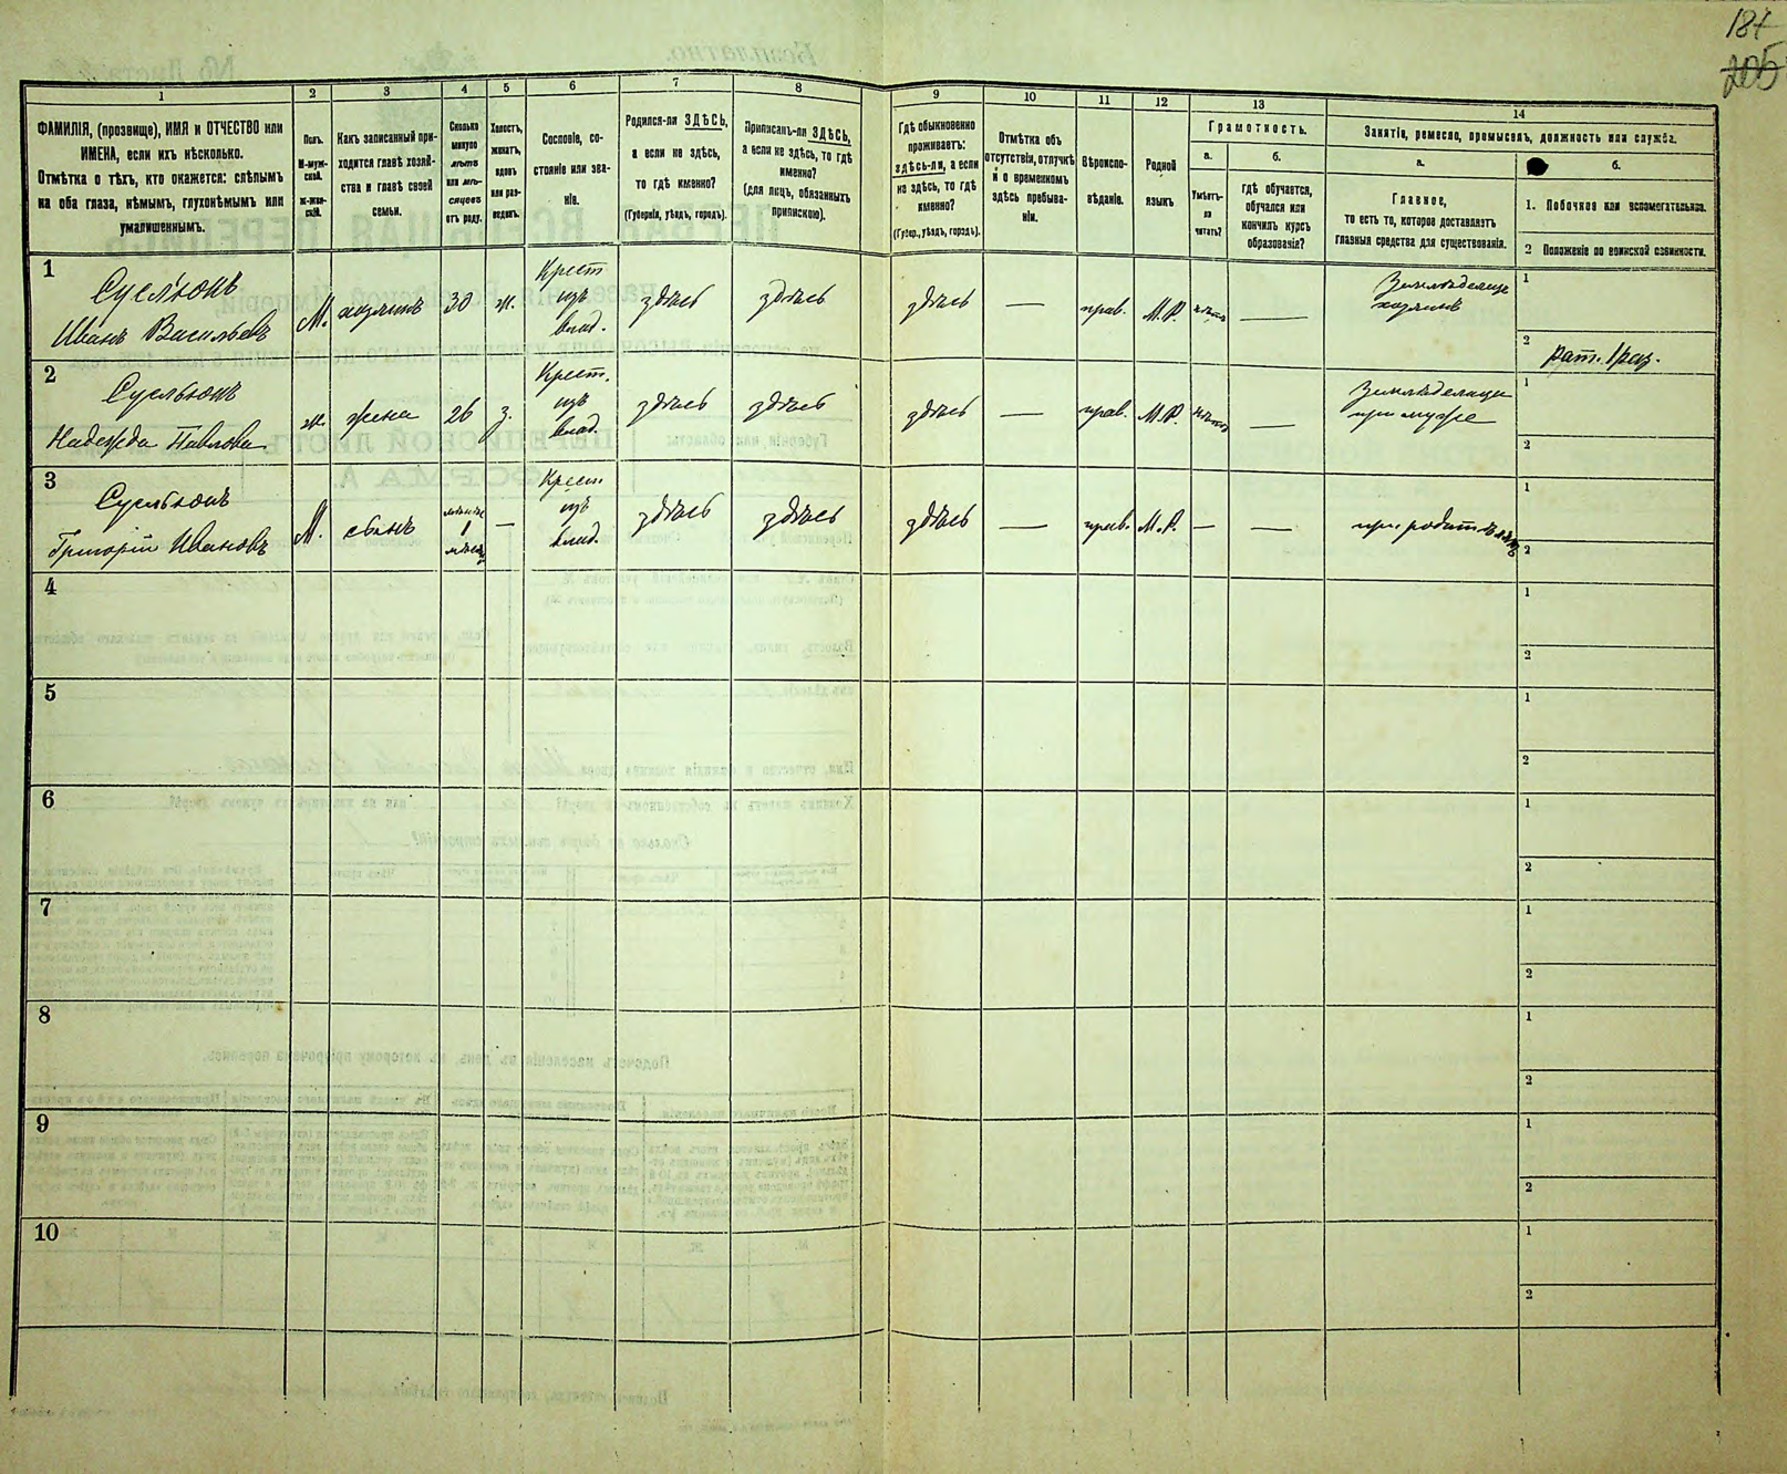 184
205
1
2
3
4
5
6
7
8
9
10
11
12
13
14
ФАМИЛІЯ, (прозвище), ИМЯ и ОТЧЕСТВО или
ИМЕНА, если ихъ нѣсколько.
Отмѣтка о тѣхъ, кто окажется: слѣпымъ
на оба глаза, нѣмымъ, глухонѣмымъ или
умалишеннымъ.
Полъ.
М-муж-
ской.
ж-жен-
скій.
Какъ записанный при-
ходится главѣ хозяй-
ства и главѣ своей
семьи.
Сколько
минуло
лѣтъ
или мѣ-
сяцевъ
отъ роду.
Холостъ,
женатъ,
вдовъ
или раз-
веденъ.
Сословіе, со-
стояніе или зва-
ніе.
Родился-ли ЗДѢСЬ,
а если не здѣсь,
то гдѣ именно?
(Губернія, уѣздъ, городъ).
Приписанъ-ли ЗДѢСЬ,
а если не здѣсь, то гдѣ
именно?
(для лицъ, обязанныхъ
припискою).
Гдѣ обыкновенно
проживаетъ:
здѣсь-ли, а если
не здѣсь, то гдѣ
именно?
(Губер., уѣздъ, городъ).
Отмѣтка объ
отсутствіи, отлучкѣ
и о временномъ
здѣсь пребыва-
ніи.
Вѣроиспо-
вѣданіе.
Родной
языкъ
Грамотность.
а.
Умѣетъ-
ли
читать?
б.
гдѣ обучается,
обучался или
кончилъ курсъ
образованія?
Занятіе, ремесло, промыселъ, должность или служба.
а.
Главное,
то есть то, которое доставляетъ
главныя средства для существованія.
б.
1. Побочное или вспомогательное.
2 Положеніе по воинской повинности.
1
Суслюкъ
Иванъ Васильевъ
М.
хозяинъ
30
ж.
Крест
изъ
влад.
здѣсь
здѣсь
здѣсь
—
прав.
М.Р.
нѣтъ
—
Земледелецъ
хозяинъ
1
2
рат. 1 раз.
2
Суслюкъ
Надежда Павлова
ж.
жена
26
з.
Крест.
изъ
влад.
здѣсь
здѣсь
здѣсь
—
прав.
М.Р.
нѣтъ
—
Земледелица
при муже
1
2
3
Суслюкъ
Григорій Ивановъ
М.
сынъ
1
—
Крест.
изъ
влад.
здѣсь
здѣсь
здѣсь
—
прав.
М.Р.
—
—
при родителяхъ
1
2
4
1
2
5
1
2
6
1
2
7
1
2
8
1
2
9
1
2
10
1
2